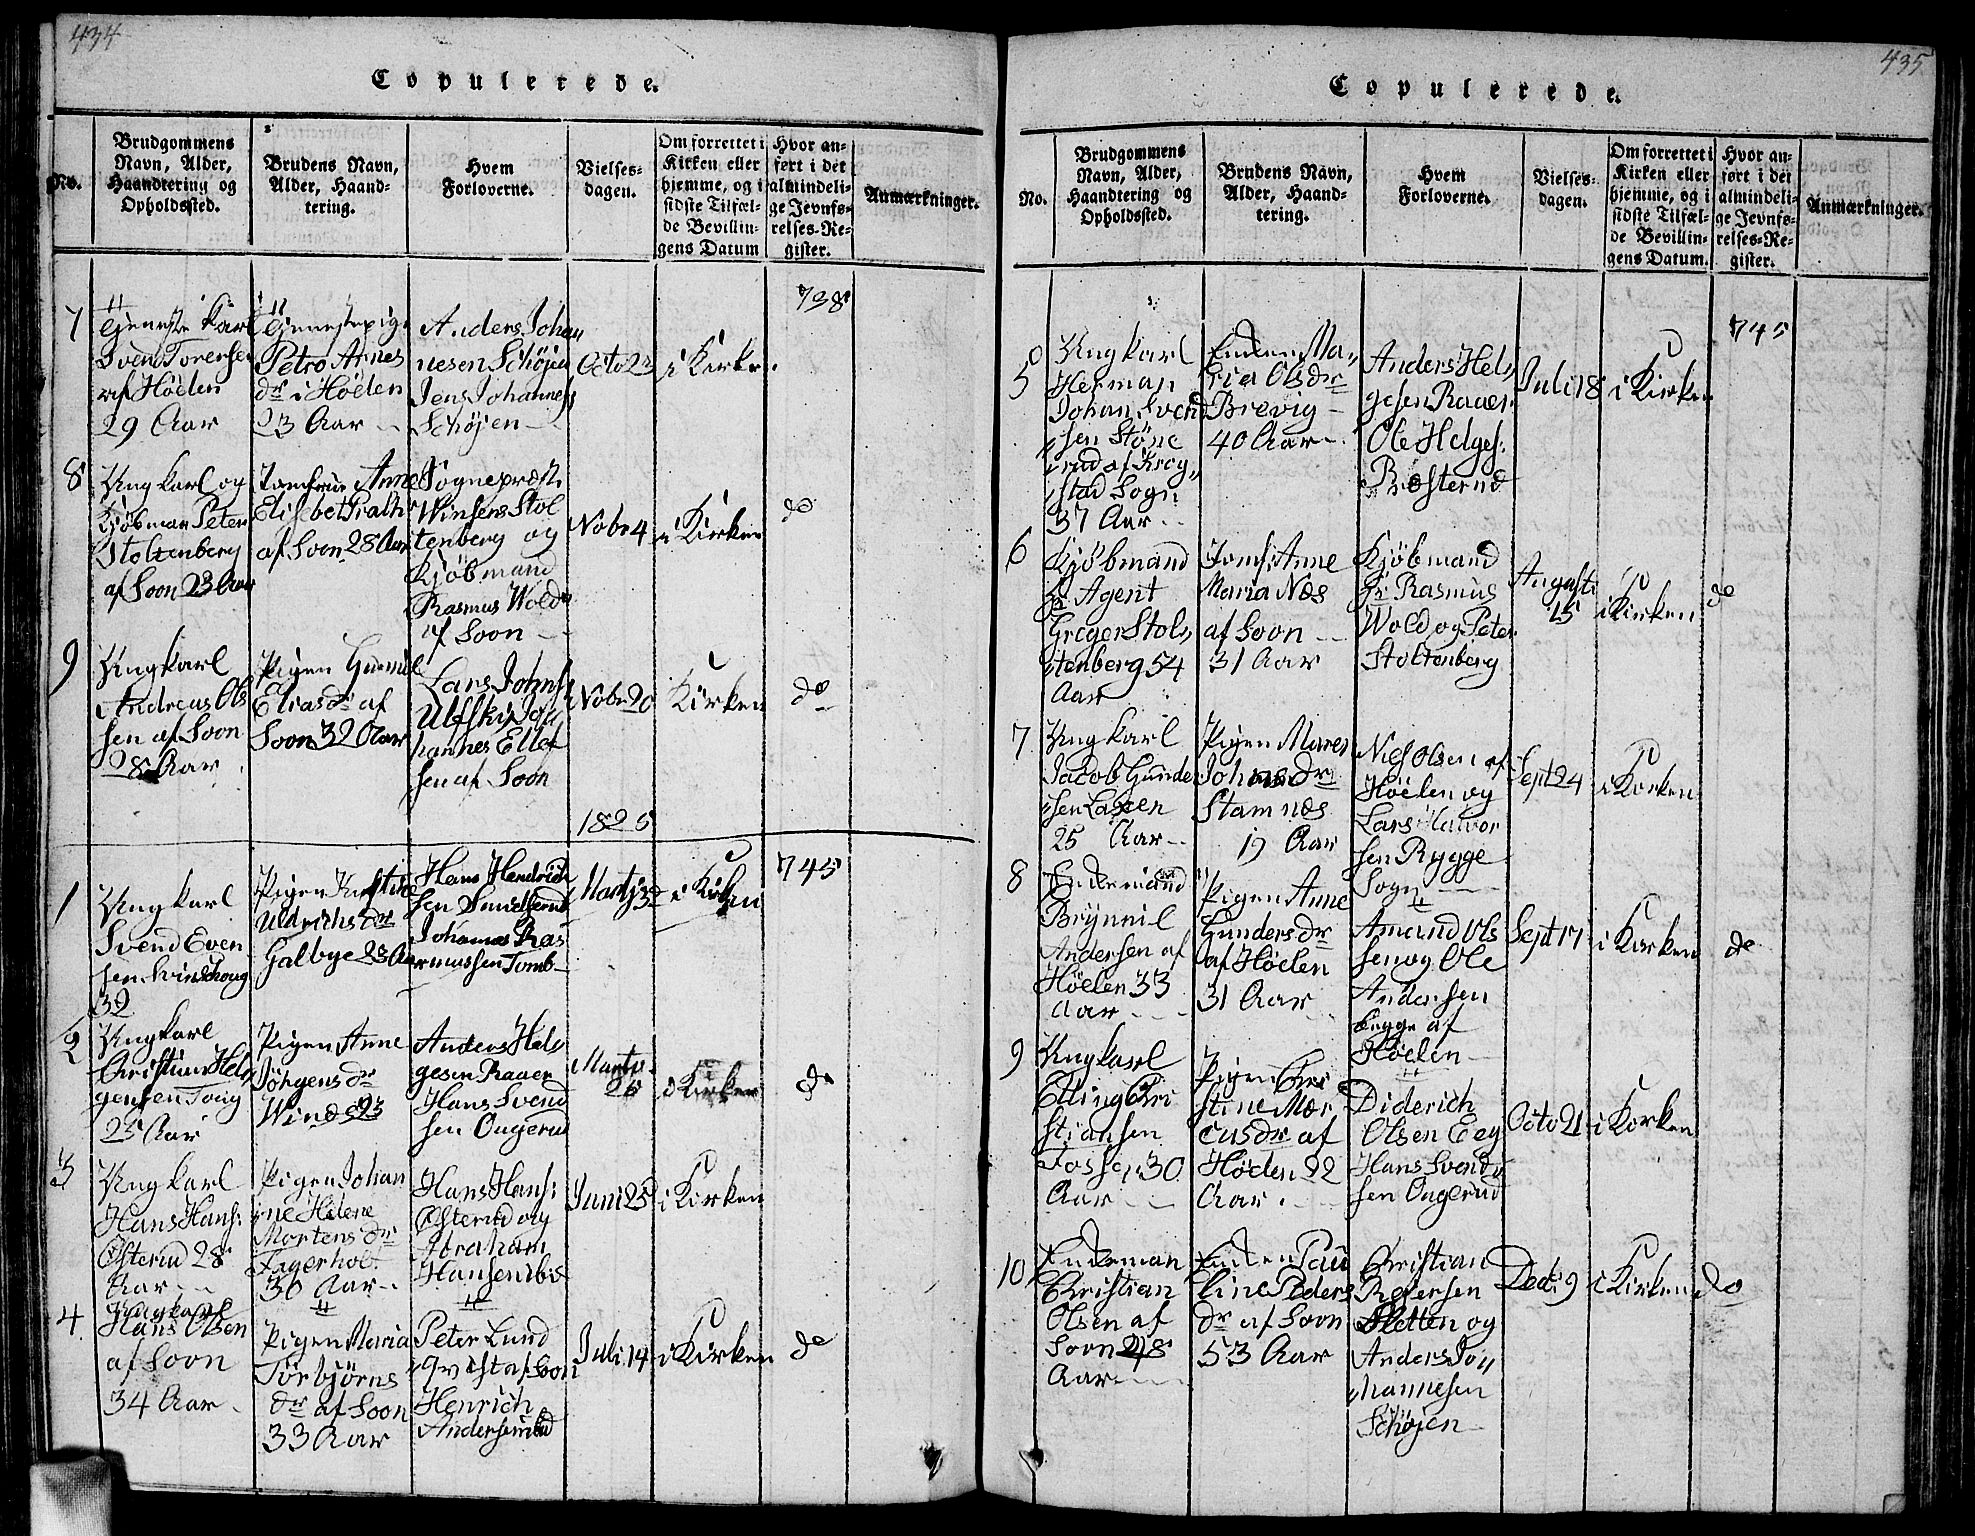 434
Copulerede.
No.
Brudgommens
Navn, Alder,
Haandtering og
Opholdssted.
Brudens Navn,
Alder, Haand-
tering.
Hvem
Forloverne.
Vielses-
dagen.
Om forrettet i
Kirken eller
hjemme, og i
sidste Tilfæl-
de Bevillin-
gens Datum
Hvor an-
ført i det
almindeli-
ge Jevnfø-
relses-Re-
gister.
Anmærkninger.
7
Tjeneste Karl
Svend Torensen
af Höelen
29 Aar
Tjenestepige
Petro Arnes
dr i Höelen
23 Aar
Anders Johan
nesen Schöjen
Jens Johannes
Schöjen
Octo 23
i Kirken
738
8
Ungkarl og
Kjöbman Peter
Stoltenberg
af Soon 23 Aar
Jomfrue Anne
Elisebet
af Soon 28 Aar
Sognepræst
Stol
tenberg og
Kjöbmand
Rasmus Wold
af Soon
Nobr 4
i Kirken
do
9
Ungkarl
Andreas Ols
sen af Soon
28 Aar
Pigen Gunnil
Eliasdr af
Soon 32 Aar
Lars Johns
Joh
hannes Ellef
sen af Soon
Nobr 20
Kirken
do
1825
1
Ungkarl
Svend Even
sen
32
Pigen Kirstine
Uldrichs dr
Galbye 23 Aar
Hans Hendrich
sen
Johannes Ras
mussen Tomb
Martj
i Kirken
745
2
Ungkarl
Christian Hel
gensen
25 Aar
Pigen Anne
Jörgens dr
Winds 23
Anders Hel
gesen Raaer
Hans Svend
sen Ongerud
Martj
26
i Kirken
do
3
Ungkarl
Hans Hans:
Österud 28
Aar
Pigen Johan
ne Helene
Mortens dr
Fagerholt
30 Aar
Hans Hans:
Österud og
Abraham
Hansen ibid
Juni 25
i Kirken
4.
Ungkarl
Hans Olsen
af Soon
34 Aar
Pigen Maria
Törbjörns
dr af Soon
33 Aar
Peter Lund
qvist af Soon
Henrich
Andersen ibd
Juli 14
i Kirken
do
435
Copulerede.
No.
Brudgommens
Navn, Alder,
Haandtering og
Opholdssted.
Brudens Navn,
Alder, Haand-
tering.
Hvem
Forloverne.
Vielses-
dagen.
Om forrettet i
Kirken eller
hjemme, og i
sidste Tilfæl-
de Bevillin-
gens Datum.
Hvor an-
ført i det
almindeli-
ge Jevnfø-
relses-Re-
gister.
Anmærkninger.
5
Ungkarl
Herman
Johan Svend
sen Stöne
rud af Krog
stad Sogn
37 Aar
Enken Ma
ria Olsdr
Brevig
40 Aar
Anders Hel
gesen Raaer
Ole Helges:
Præsterud
Juli 18
i Kirken
745
6
Kjöbmand
Hr Agent
Greger Stol
tenberg 54
Aar
Jomf: Anne
Maria Næs
af Soon
31 Aar
Kjöbmand
Hr Rasmus
Wold og Peter
Stoltenberg
August
15
i Kirken
do
7
Ungkarl
Jacob Gunder
sen Laxen
25 Aar
Pigen Maren
Johannesdr
Stamnæs
19 Aar
Niels Olsen af
Höelen og
Lars Halvor
sen Rygge
Sogn
Sept 24
i Kirken
8
Enkemand
Brynnil
Andersen af
Höelen 33
Aar
Pigen Anne
Gundersdr
af Höelen
31 Aar
Amund Ols
sen og Ole
Andersen
begge af
Höelen
Sept 17
i Kirken
do
9
Ungkarl
Elling Chri
stiansen
Fosse 30
Aar
Pigen Chri
stine Mar
cusdr af
Höelen 22
Aar
Diderich
Olsen Eeg
Hans Svend
sen Ongerud
Octo 21
i Kirken
10
Enkeman
Christian
Olsen af
Soon 48
Aar
Enken Pau
line Peders
dr af Soon
53 Aar
Christian
Pedersen
Sletten og
Anders Jo
hannesen
Schöjen
Dec: 9
i Kirken
do